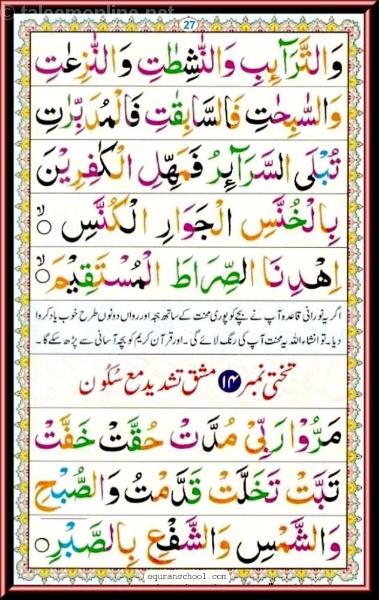 taleemonline.net
27
وَالتَّرَآئِبِ وَالنّٰشِطٰتِ وَالنّٰزِعٰتِ
وَالسّٰبِحٰتِ فَالسّٰبِقٰتِ فَالْمُدَبِّرٰتِ
تُبْلَى السَّرَآئِرُ فَمَهِّلِ الْكٰفِرِيْنَ
بِالْخُنَّسِ الْجَوَارِ الْكُنَّسِ
اِهْدِنَا الصِّرَاطَ الْمُسْتَقِيْمَ
اگر یہ نورانی قاعدہ آپ نے بچے کو پوری محنت کے ساتھ ہجہ اور رواں دونوں طرح خوب یاد کروا
دیا۔ تو انشاء اللہ یہ محنت آپ کی رنگ لائے گی۔ اور قرآن کریم کو بچہ آسانی سے پڑھ سکے گا۔
تختی نمبر ۱۴ مشق تشدید مع سُکُون
مَرُّوْا رَبِّىْ مُدَّتْ حُقَّتْ خَفَّتْ
تَبَّتْ تَخَلَّتْ قَدَّمْتُ وَالصُّبْحِ
وَالشَّمْسِ وَالشَّفْعِ بِالصَّبْرِ
equranschool.com